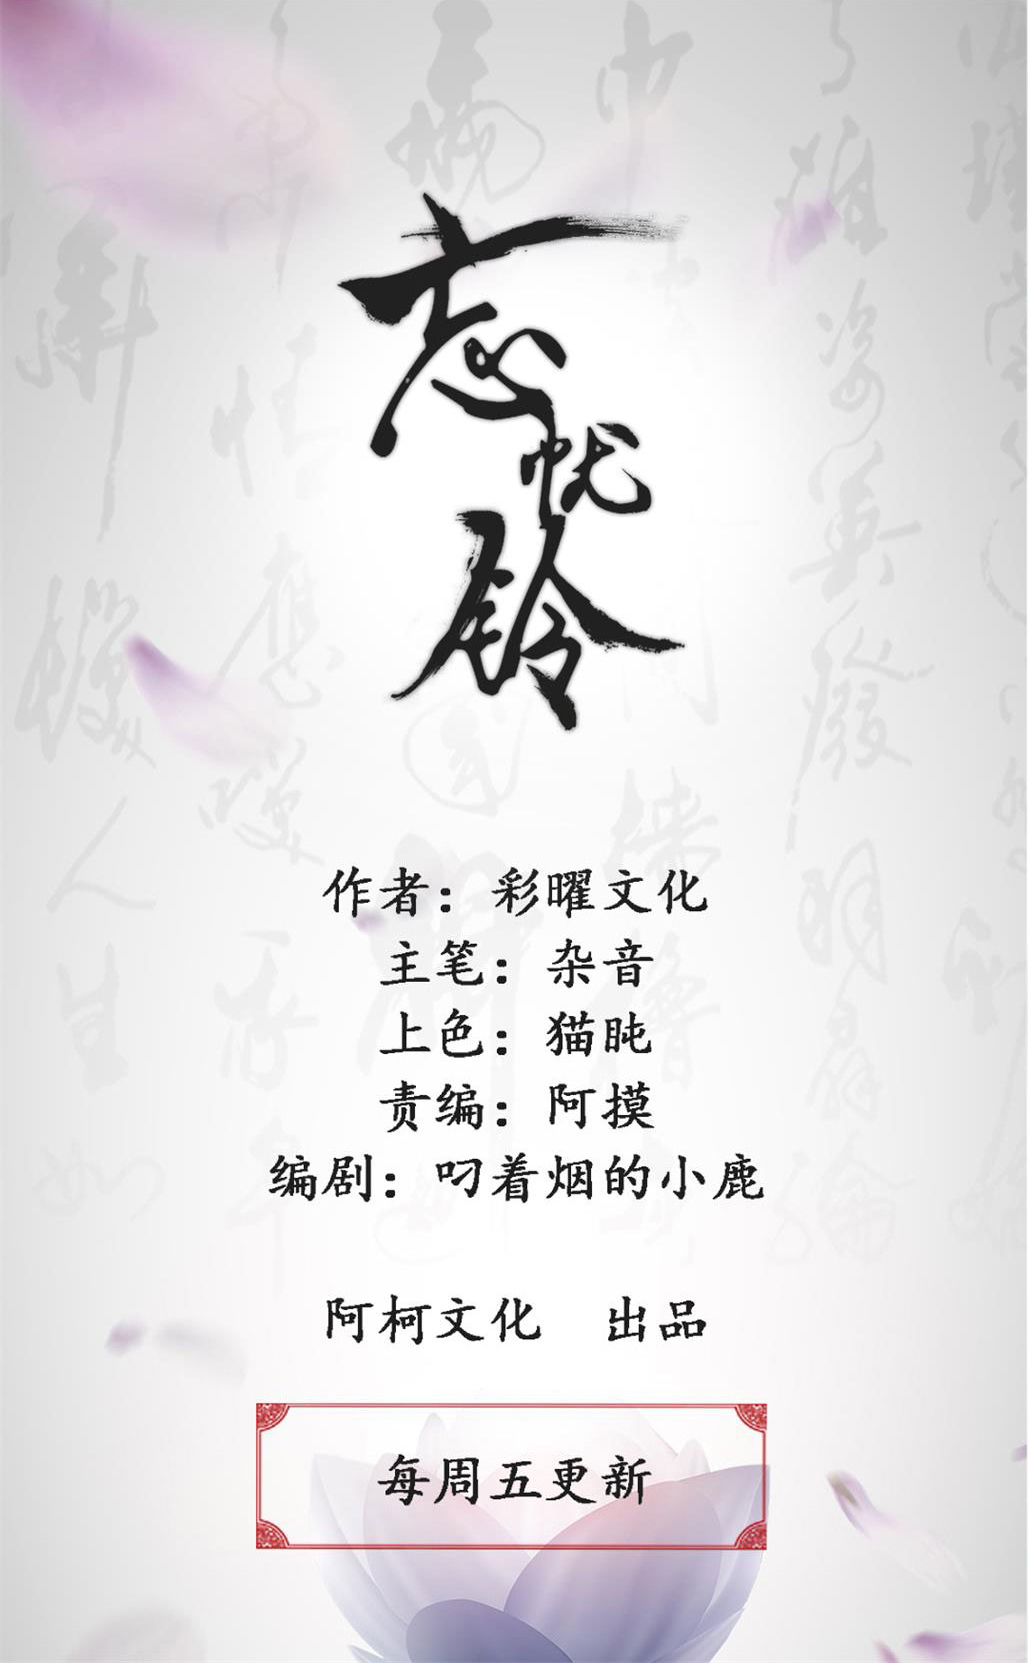 忘忧铃
作者：彩曜文化
主笔：杂音
上色：猫盹
责编：阿摸
编剧：叼着烟的小鹿
阿柯文化　出品
每周五更新